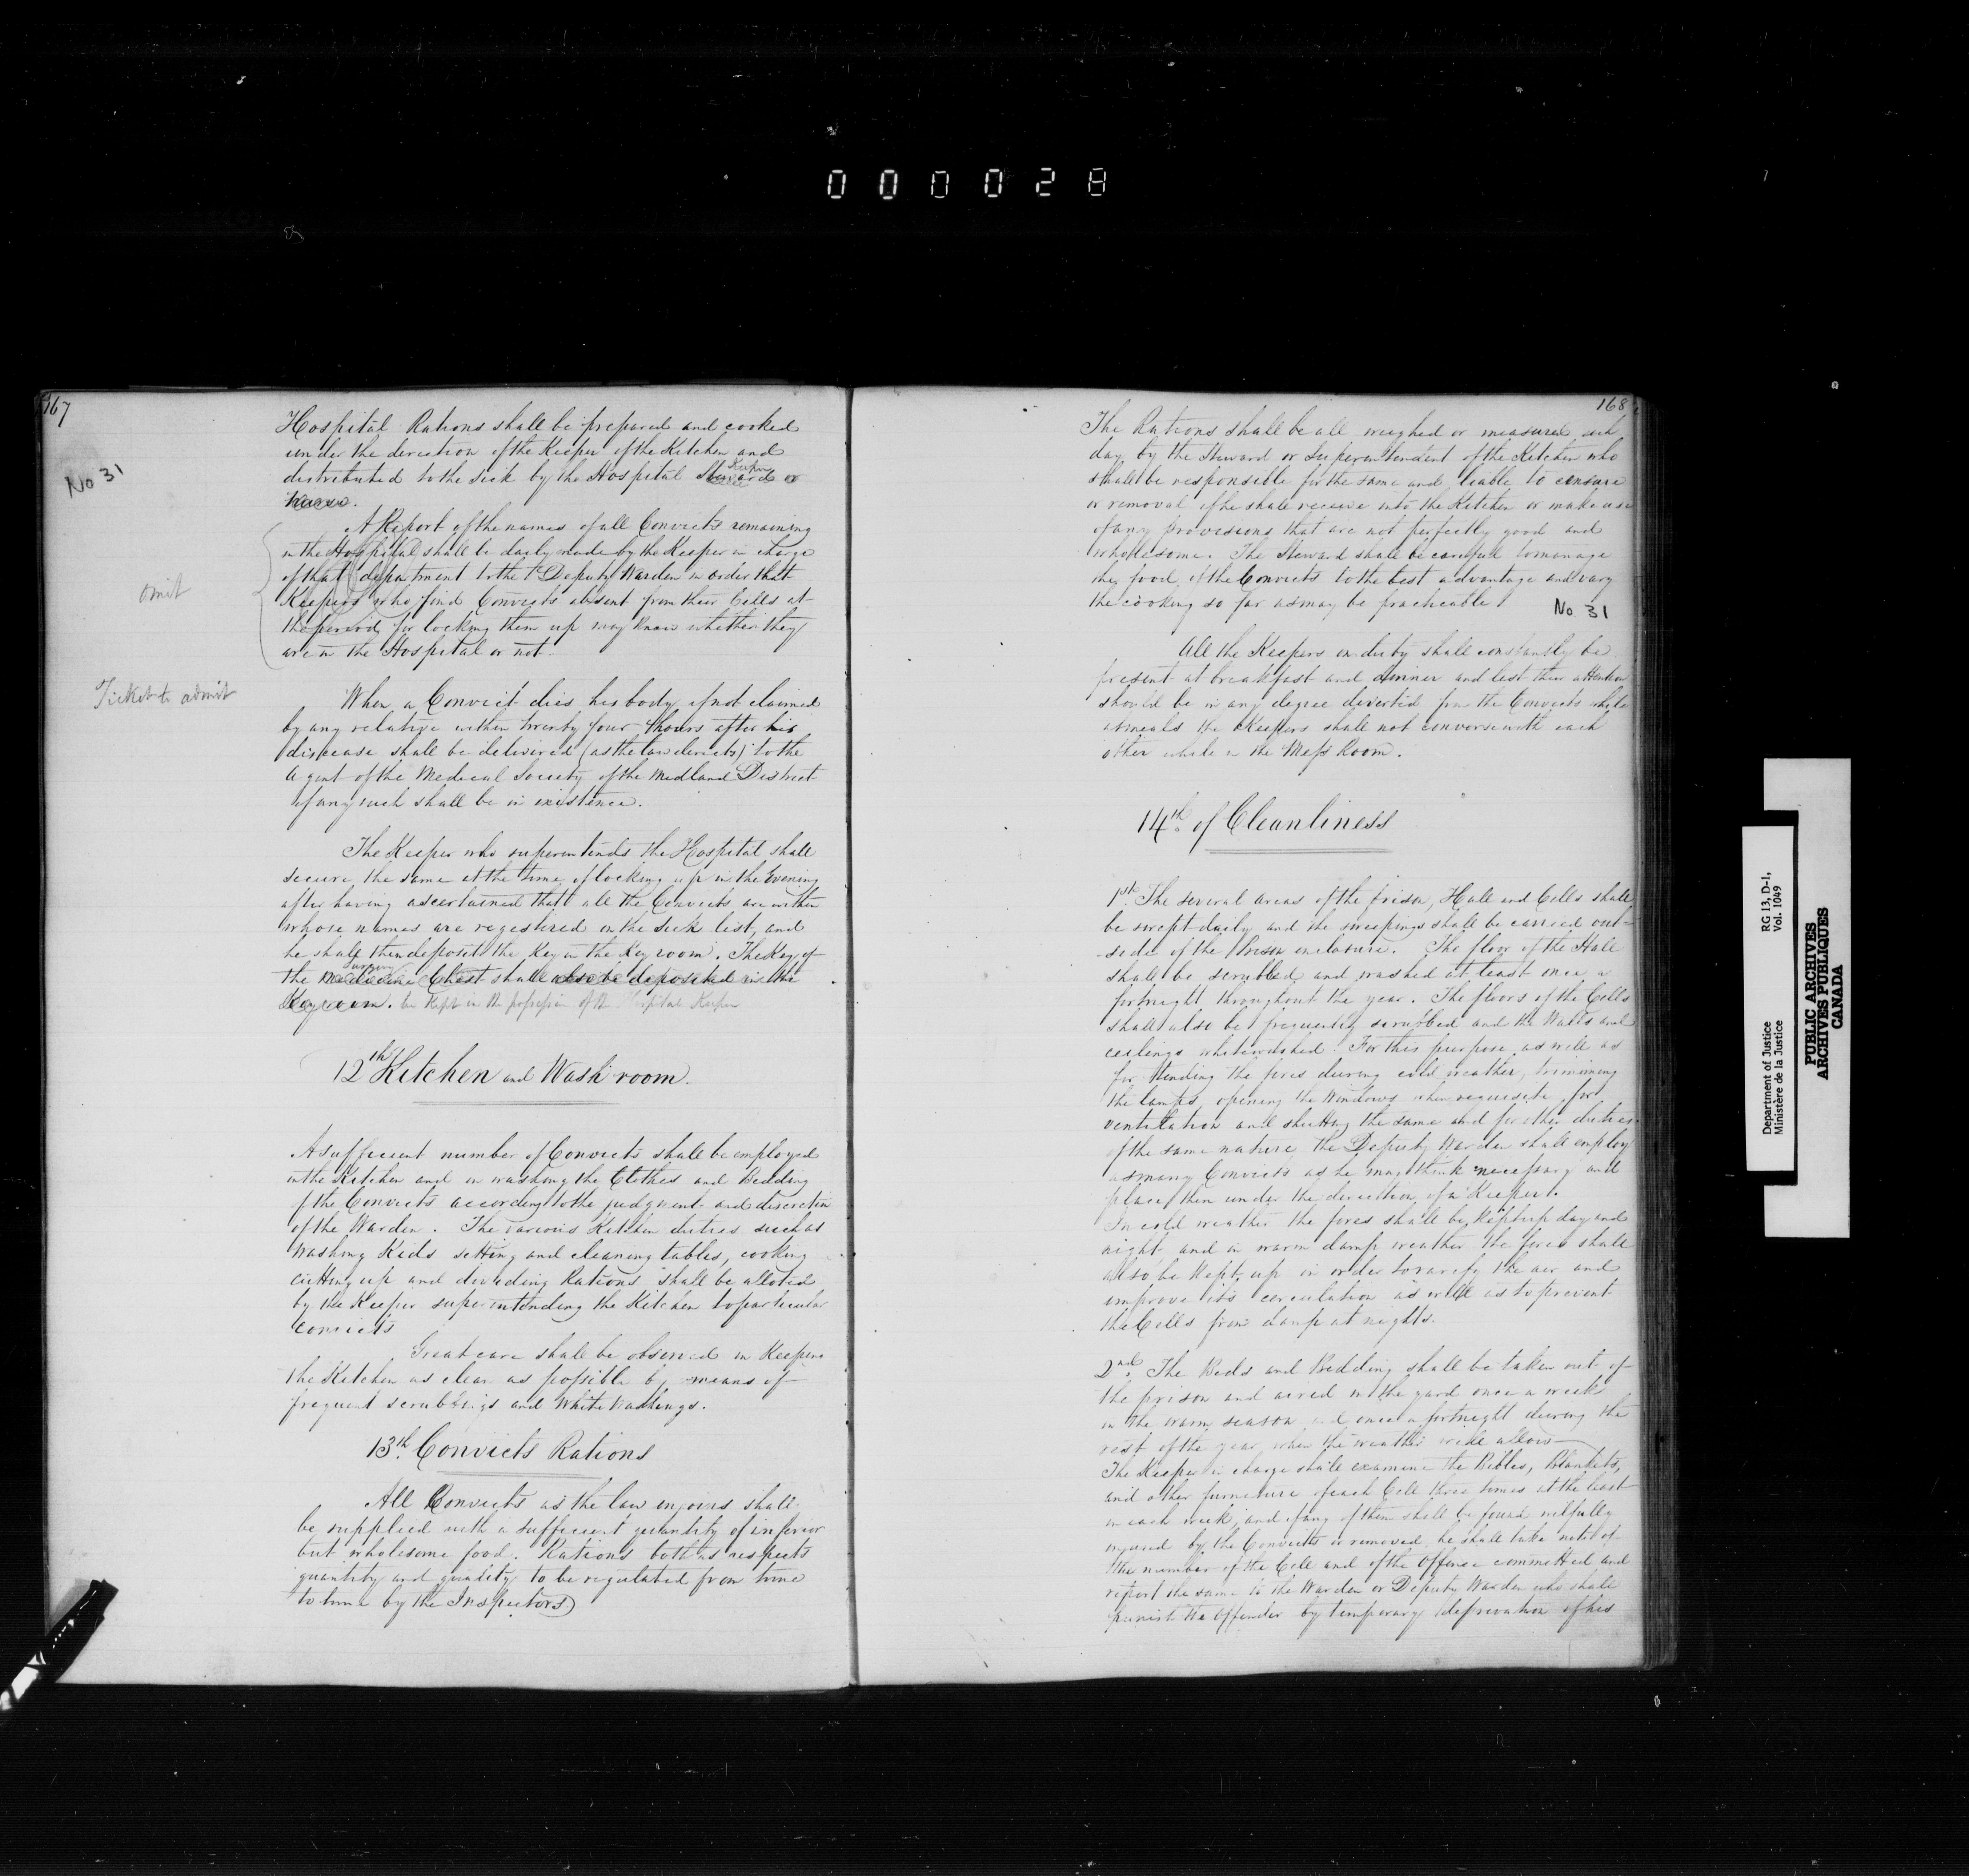 000028
167
No 31
Hospital Rations shall be prepared and cooked
under the direction of the Keeper of the Kitchen and
distributed to the sick by the Hospital Steward or
Keeper
nurse.
A Report of the names of all Convicts remaining
in the Hospital shall be daily made by the Keeper in charge
of that department to the Deputy Warden in order that
Keepers who find Convicts absent from their Cells at
the period for locking them up may know whether they
are in the Hospital or not.
omit
Ticket to admit
When a Convict dies his body if not claimed
by any relative within twenty four hours after his
disease shall be delivered (as the law directs) to the
Agent of the Medical Society of the Midland District
if any such shall be in existence.
The Keeper who superintends the Hospital shall
secure the same at the time of locking up in the Evening
after having ascertained that all the Convicts are within
whose names are registered on the sick list, and
he shall then deposit the Key in the Key room. The Key of
Surgery
the Medicine Chest shall also be deposited in the
Key room. be kept in the possession of the Hospital Keeper
12th Kitchen and Wash room.
A sufficient number of Convicts shall be employed
in the Kitchen and in washing the Clothes and Bedding
of the Convicts according to the judgment and discretion
of the Warden. The various Kitchen duties such as
Washing Kids setting and cleaning tables, cooking
cutting up and dividing Rations shall be alloted
by the Keeper superintending the Kitchen to particular
convicts
Great care shall be observed in Keeping
the Kitchen as clean as possible by means of
frequent scrubbings and White Washings.
13th Convicts Rations
All Convicts as the law enjoins shall
be supplied with a sufficient quantity of inferior
but wholesome food. Rations both as respects
quantity and quality to be regulated from time
to time by the Inspectors)
168
The Rations shall be all weighed or measured each
day by the Steward or Superintendent of the Kitchen who
shall be responsible for the same and liable to censure
or removal if he shall receive into the Kitchen or make use
of any provisions that are not perfectly good and
wholesome. The Steward shall be careful to manage
the food of the Convicts to the best advantage and vary
the cooking so far as may be practicable
No 31
All the Keepers on duty shall constantly be
present at breakfast and dinner and lest their attention
should be in any degree diverted from the Convicts while
at meals the Keepers shall not converse with each
other while in the Mess Room.
14th of Cleanliness
1st. The several areas of the prison, Hall and Cells shall
be swept daily and the sweepings shall be carried out-
-side of the Prison enclosure. The floor of the Hall
shall be scrubbed and washed at least once a
fortnight throughout the year. The floors of the Cells
shall also be frequently scrubbed and the Walls and
ceilings whitewashed. For this purpose as well as
for tending the fires during cold weather, trimming
the lamps, opening the Windows when requisite for
ventilation and shutting the same and for other duties
of the same nature the Deputy Warden shall employ
as many Convicts as he may think necessary and
place them under the direction of a Keeper.
In cold weather the fires shall be Kept up day and
night and in warm damp weather the fires shall
also be Kept up in order to rarify the air and
improve its circulation as well as to prevent
the Cells from damp at nights.
2nd. The Beds and Bedding shall be taken out of
the prison and aired in the yard once a week
in the warm season and once a fortnight during the
rest of the year when the weather will allow
The Keeper in charge shall examine the Bibles, Blankets,
and other furniture of each Cell three times at the least
in each week, and if any of them shall be found wilfully
injured by the Convicts or removed, he shall take note of
the number of the Cell and of the Offence committed and
report the same to the Warden or Deputy Warden who shall
punish the Offender by temporary deprivation of his
Department of Justice RG 13, D-1,
Ministère de la Justice Vol. 1049
PUBLIC ARCHIVES
ARCHIVES PUBLIQUES
CANADA